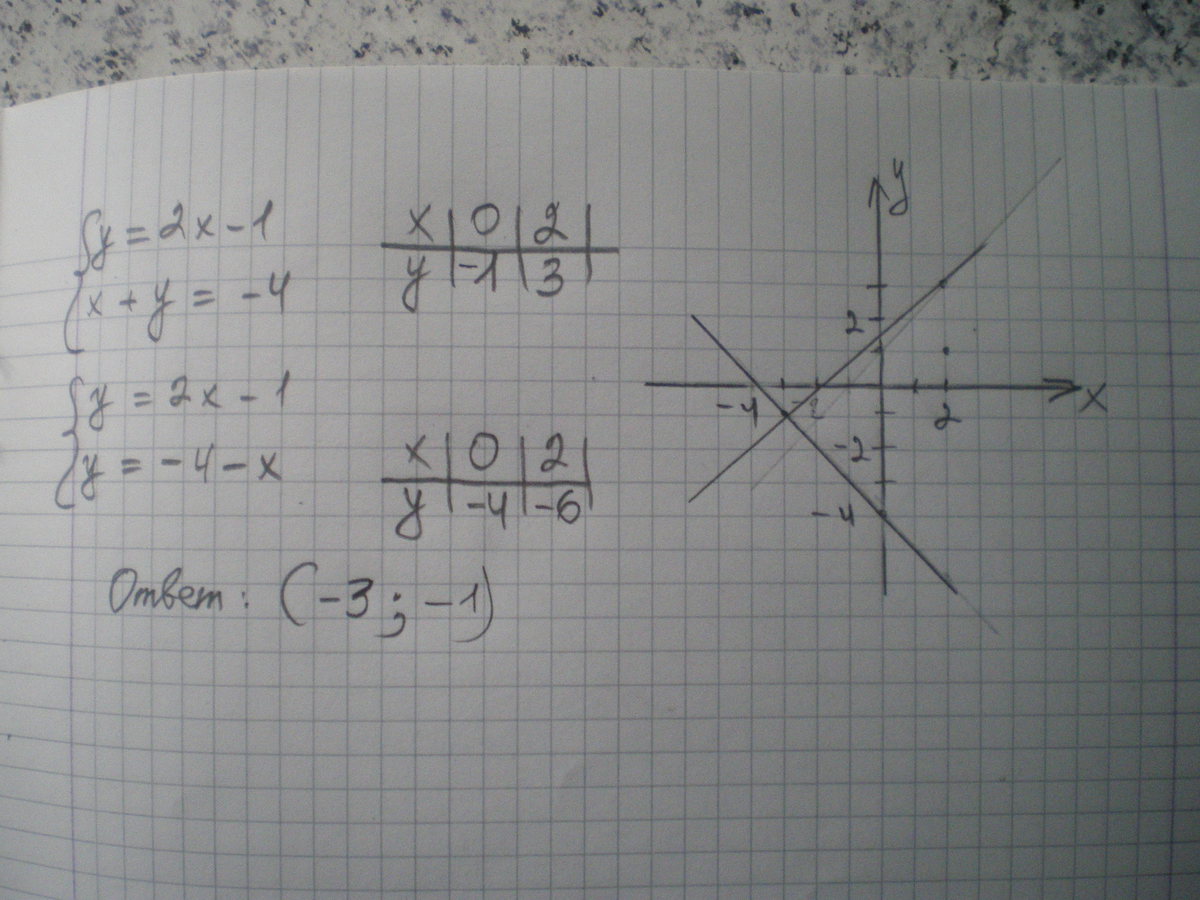 y = 2x - 1
x + y = -4
x | 0 | 2 |
y | -1 | 3 |
y = 2x - 1
y = -4 - x
x | 0 | 2 |
y | -4 | -6 |
Ответ: (-3 ; -1)
y
2
-4
2
x
-2
-4